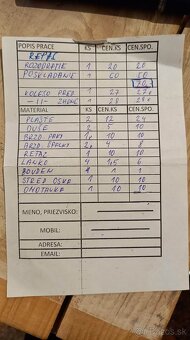 POPIS PRACE KS CEN.KS CEN.SPO.
REPAS
ROZOBRANIE 1 20 20
POSKLADANIE 50 50
KOLESO PRED 1 27 27
-II- ZADNE 1 28 28
MATERIAL KS CEN.KS CEN.SPO.
PLASTE 2 12 24
DUSE 2 5 10
BRZD. 1 10 10
BRZD. SPALKY 2 4 8
RETAZ 1 10 10
LANKO 4 1,5 6
BOUDEN 1 5 5
STRED. OSKA 1 10 10
OMOTAVKA 10 10
MENO, PRIEZVISKO:
MOBIL:
ADRESA:
EMAIL:
bazos.sk